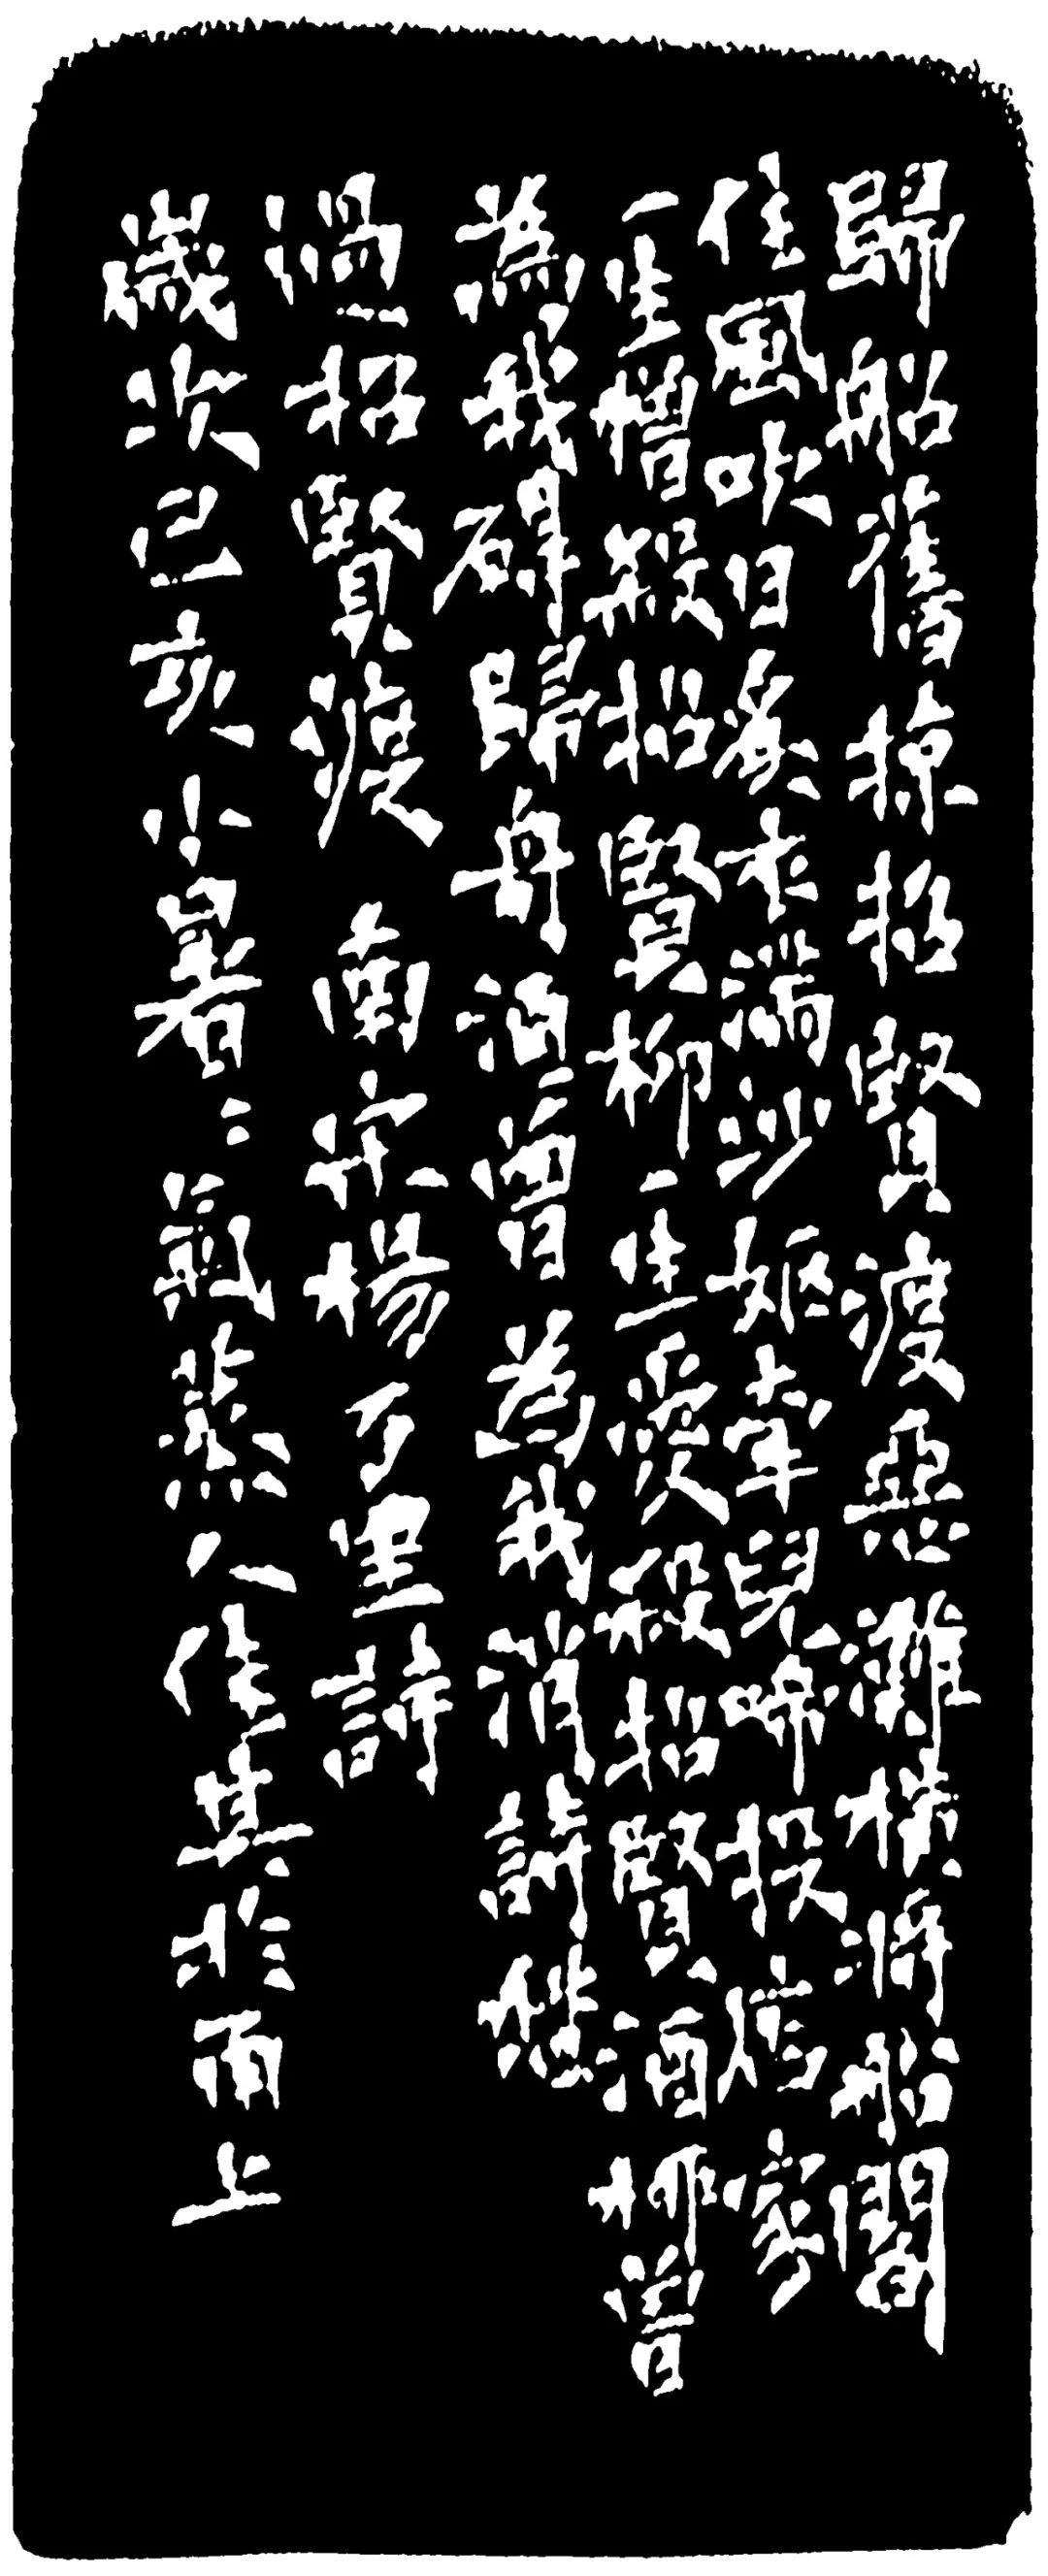 歸船舊掠招賢渡惡灘橫將船閣
住風吹日炙衣滿沙嫗牽兒啼投店家
一生憎殺招賢柳一生愛殺招賢酒柳曾
為我碍歸舟酒曾為我消詩愁
過招賢渡 南宋楊万里詩
歲次己亥小暑〻氣蒸人佳其於雨上